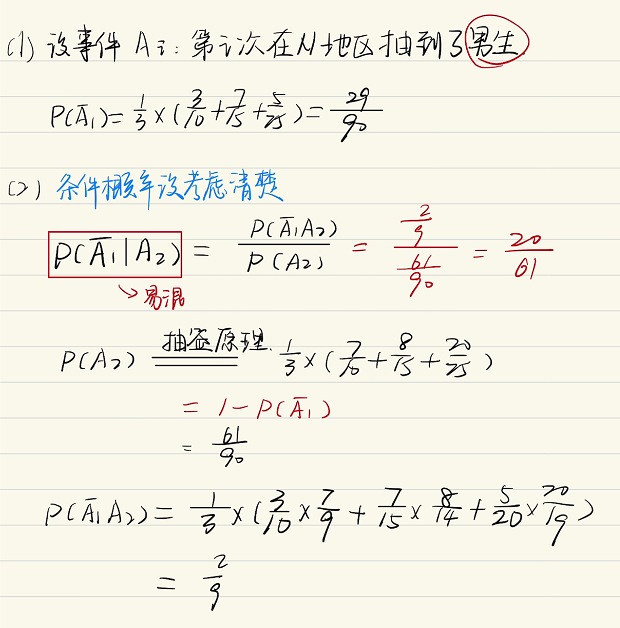 (1) 设事件 Ai: 第i次在N地区抽到了男生
P(Ā₁)=1/3×(3/10+7/15+5/25)=29/90
(2) 条件概率没考虑清楚
P(Ā₁|A₂) = P(Ā₁A₂)/P(A₂) = (2/9)/(61/90) = 20/61
↘易混
P(A₂) 抽签原理 1/3×(7/10+8/15+20/25)
= 1-P(Ā₁)
= 61/90
P(Ā₁A₂)= 1/3×(3/10×7/9+7/15×8/14+5/20×20/19)
= 2/9